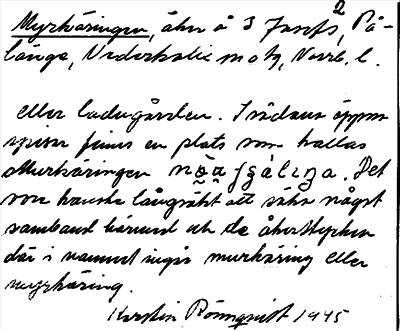 Myrkäringen, åker å 3 Josefs², På-
länge, Nederkalix sn o tg, Norrb. l.
eller ladugården. I sådana öppna
spisar finns en plats som kallas
Murkäringen. Det
vore kanske långsökt att söka något
samband härmed och de åkerstycken
där i namnet ingår murkäring eller
myrkäring.
Kerstin Rönnqvist 1945